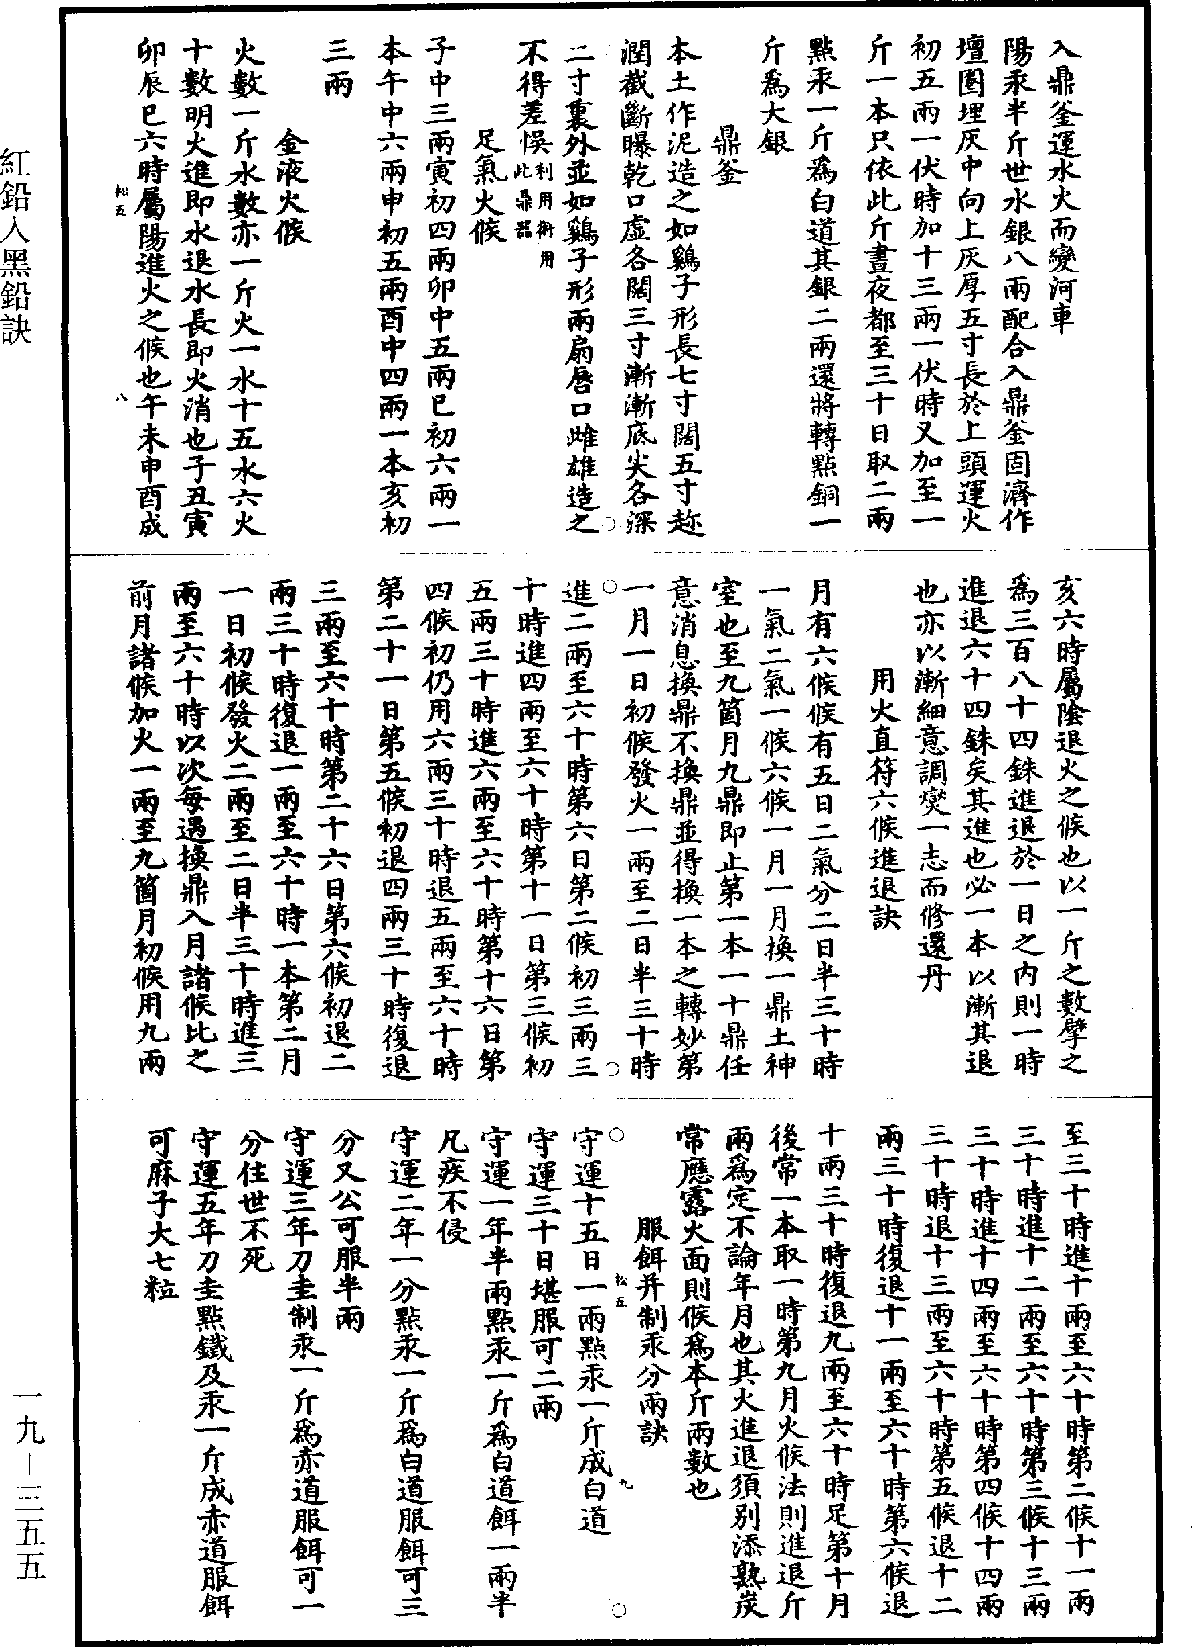 入鼎釜運水火而變河車
陽汞半斤世水銀八兩配合入鼎釜固濟作
壇圍埋灰中向上灰厚五寸長於上頭運火
初五兩一伏時加十三兩一伏時又加至一
斤一本只依此斤晝夜都至三十日取二兩
點汞一斤為白道其銀二兩還將轉點銅一
斤為大銀
鼎釜
本土作泥造之如鷄子形長七寸闊五寸趂
潤截斷曝乾口虛各闊三寸漸漸底尖各深
二寸裏外並如鷄子形兩扇唇口雌雄造之
不得差悞此鼎器利用術用
足氣火候
子中三兩寅初四兩卯中五兩巳初六兩一
本午中六兩申初五兩酉中四兩一本亥初
三兩
金液火候
火數一斤水數亦一斤火一水十五水六火
十數明火進即水退水長即火消也子丑寅
卯辰巳六時屬陽進火之候也午未申酉戌
松五
八
亥六時屬陰退火之候也以一斤之數擘之
為三百八十四銖進退於一日之內則一時
進退六十四銖矣其進也必一本以漸其退
也亦以漸細意調燮一志而修還丹
用火直符六候進退訣
月有六候候有五日二氣分二日半三十時
一氣二氣一候六候一月一月換一鼎土神
室也至九箇月九鼎即止第一本一十鼎任
意消息換鼎不換鼎並得換一本之轉妙第
一月一日初候發火一兩至二日半三十時
進二兩至六十時第六日第二候初三兩三
十時進四兩至六十時第十一日第三候初
五兩三十時進六兩至六十時第十六日第
四候初仍用六兩三十時退五兩至六十時
第二十一日第五候初退四兩三十時復退
三兩至六十時第二十六日第六候初退二
兩三十時復退一兩至六十時一本第二月
一日初候發火二兩至二日半三十時進三
兩至六十時以次每遇換鼎入月諸候比之
前月諸候加火一兩至九箇月初候用九兩
至三十時進十兩至六十時第二候十一兩
三十時進十二兩至六十時第三候十三兩
三十時進十四兩至六十時第四候十四兩
三十時退十三兩至六十時第五候退十二
兩三十時復退十一兩至六十時第六候退
十兩三十時復退九兩至六十時足第十月
後常一本取一時第九月火候法則進退斤
兩為定不論年月也其火進退須別添熟炭
常應露火面則候為本斤兩數也
服餌并制汞分兩訣
松五
九
守運十五日一兩點汞一斤成白道
守運三十日堪服可二兩
守運一年半兩點汞一斤為白道餌一兩半
凡疾不侵
守運二年一分點汞一斤為白道服餌可三
分又公可服半兩
守運三年刀圭制汞一斤為赤道服餌可一
分住世不死
守運五年刀圭點鐵及汞一斤成赤道服餌
可麻子大七粒
紅鉛入黑鉛訣
一九—三五五